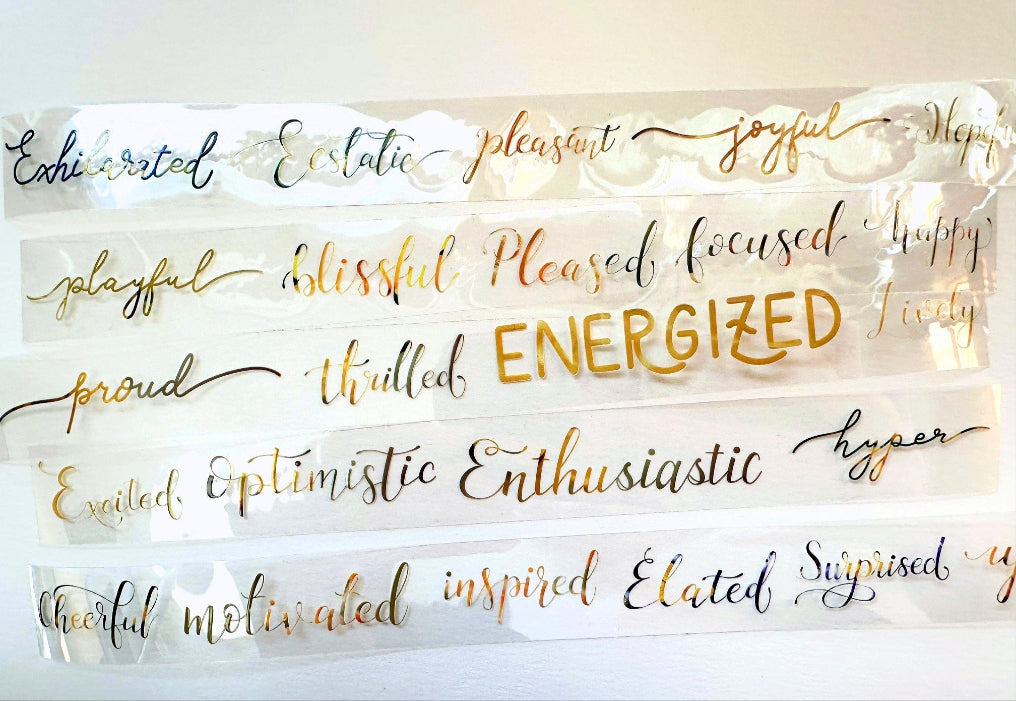 Exhilarated Ecstatic pleasant joyful
playful blissful Pleased focused happy
proud thrilled ENERGIZED Lively
Excited Optimistic Enthusiastic hyper
Cheerful motivated inspired Elated Surprised